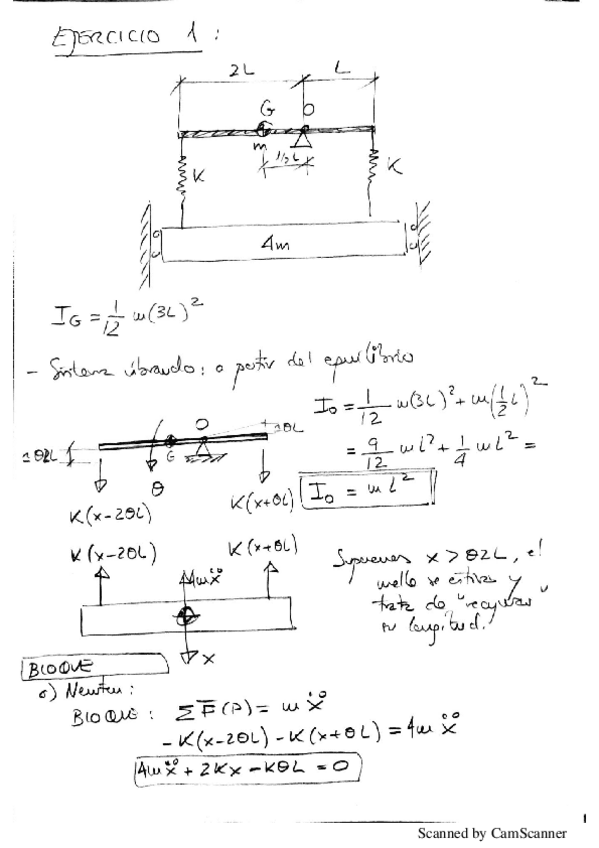 EJERCICIO 1:
2L L
G O
m
1/2 L
K K
4m
I_G = 1/12 m(3L)²
- Sistema vibrando: a partir del equilibrio
I_O = 1/12 m(3L)² + m(1/2 L)²
= 9/12 mL² + 1/4 mL² =
I_O = mL²
O θL
θ2L G
θ
K(x-2θL) K(x+θL)
K(x-2θL) K(x+θL)
4mẍ
Suponemos x > θ2L, el
muelle se estira y
trata de "recuperar"
su longitud.
x
BLOQUE
a) Newton:
BLOQUE: Σ F̄(P) = mẍ
-K(x-2θL) - K(x+θL) = 4mẍ
4mẍ + 2Kx - KθL = 0
1
Scanned by CamScanner